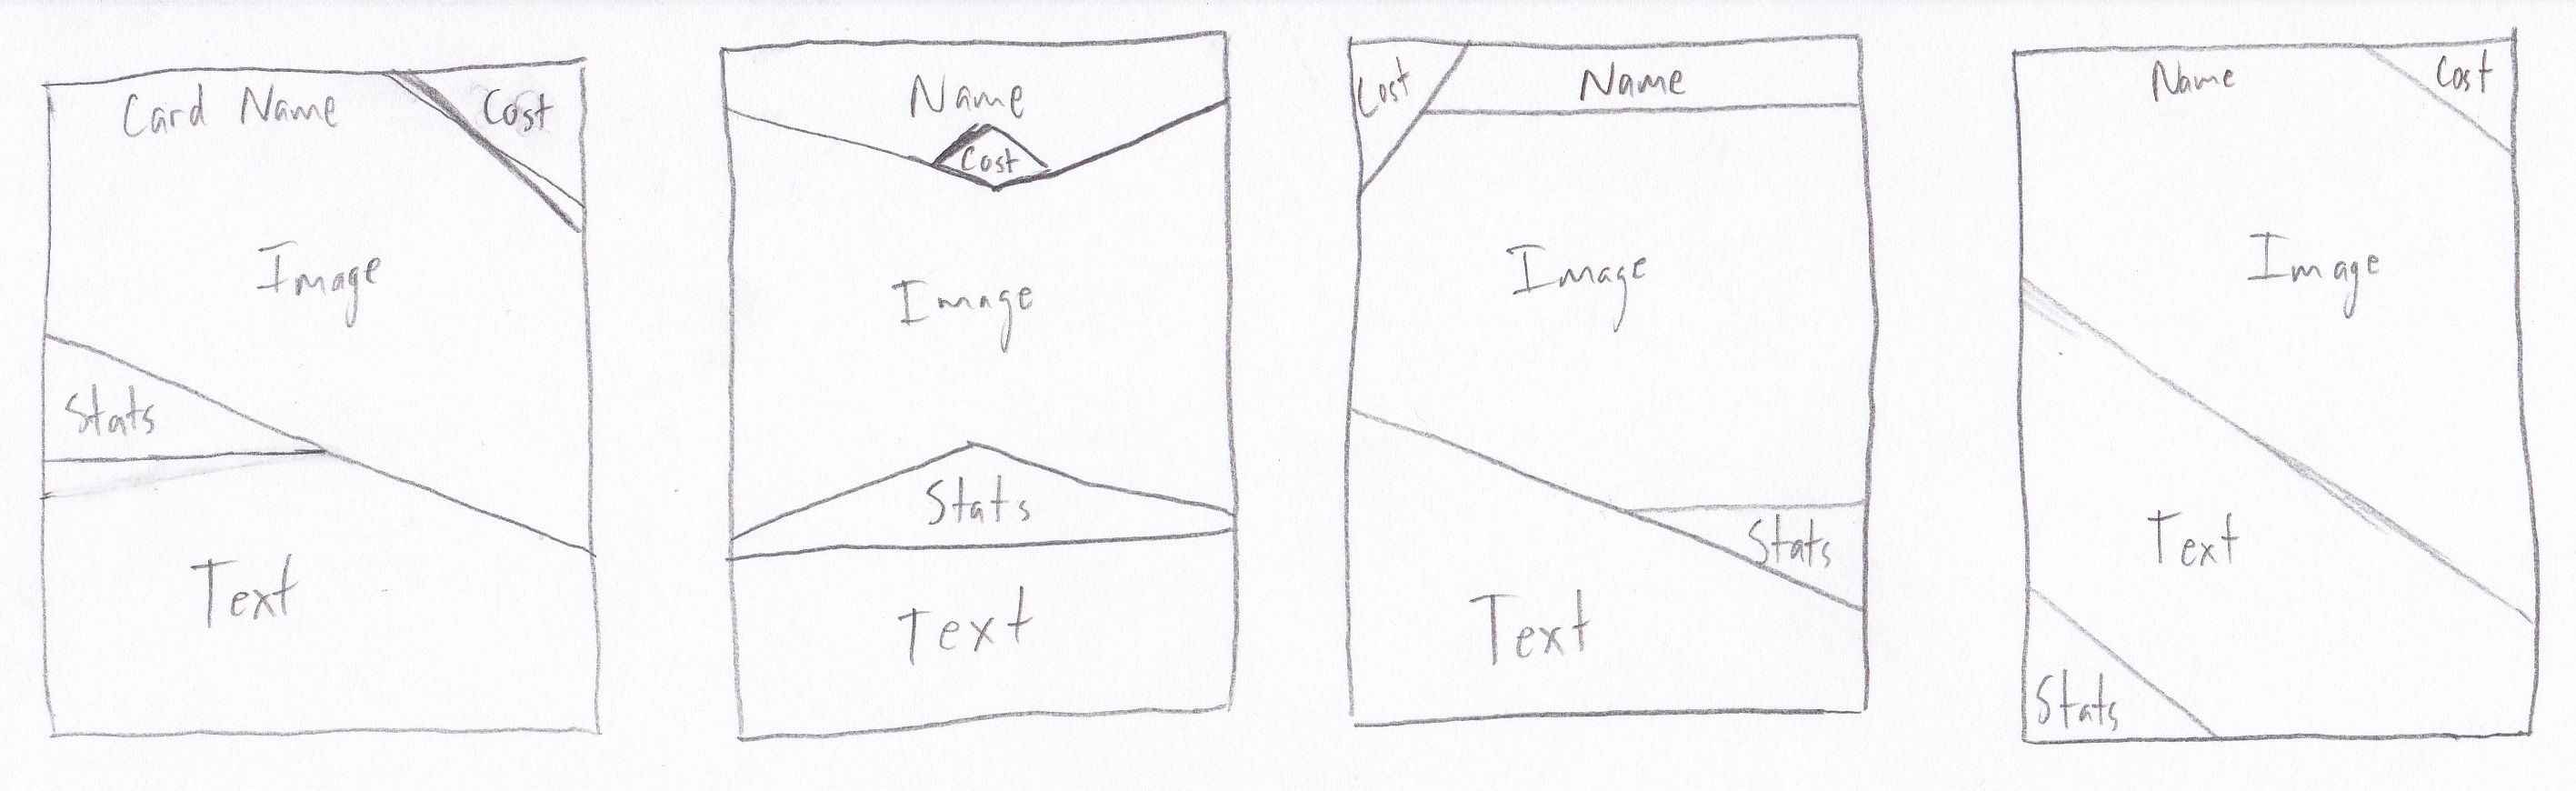 Card Name
Cost
Image
Stats
Text
Name
Cost
Image
Stats
Text
Cost
Name
Image
Stats
Text
Name
Cost
Image
Text
Stats